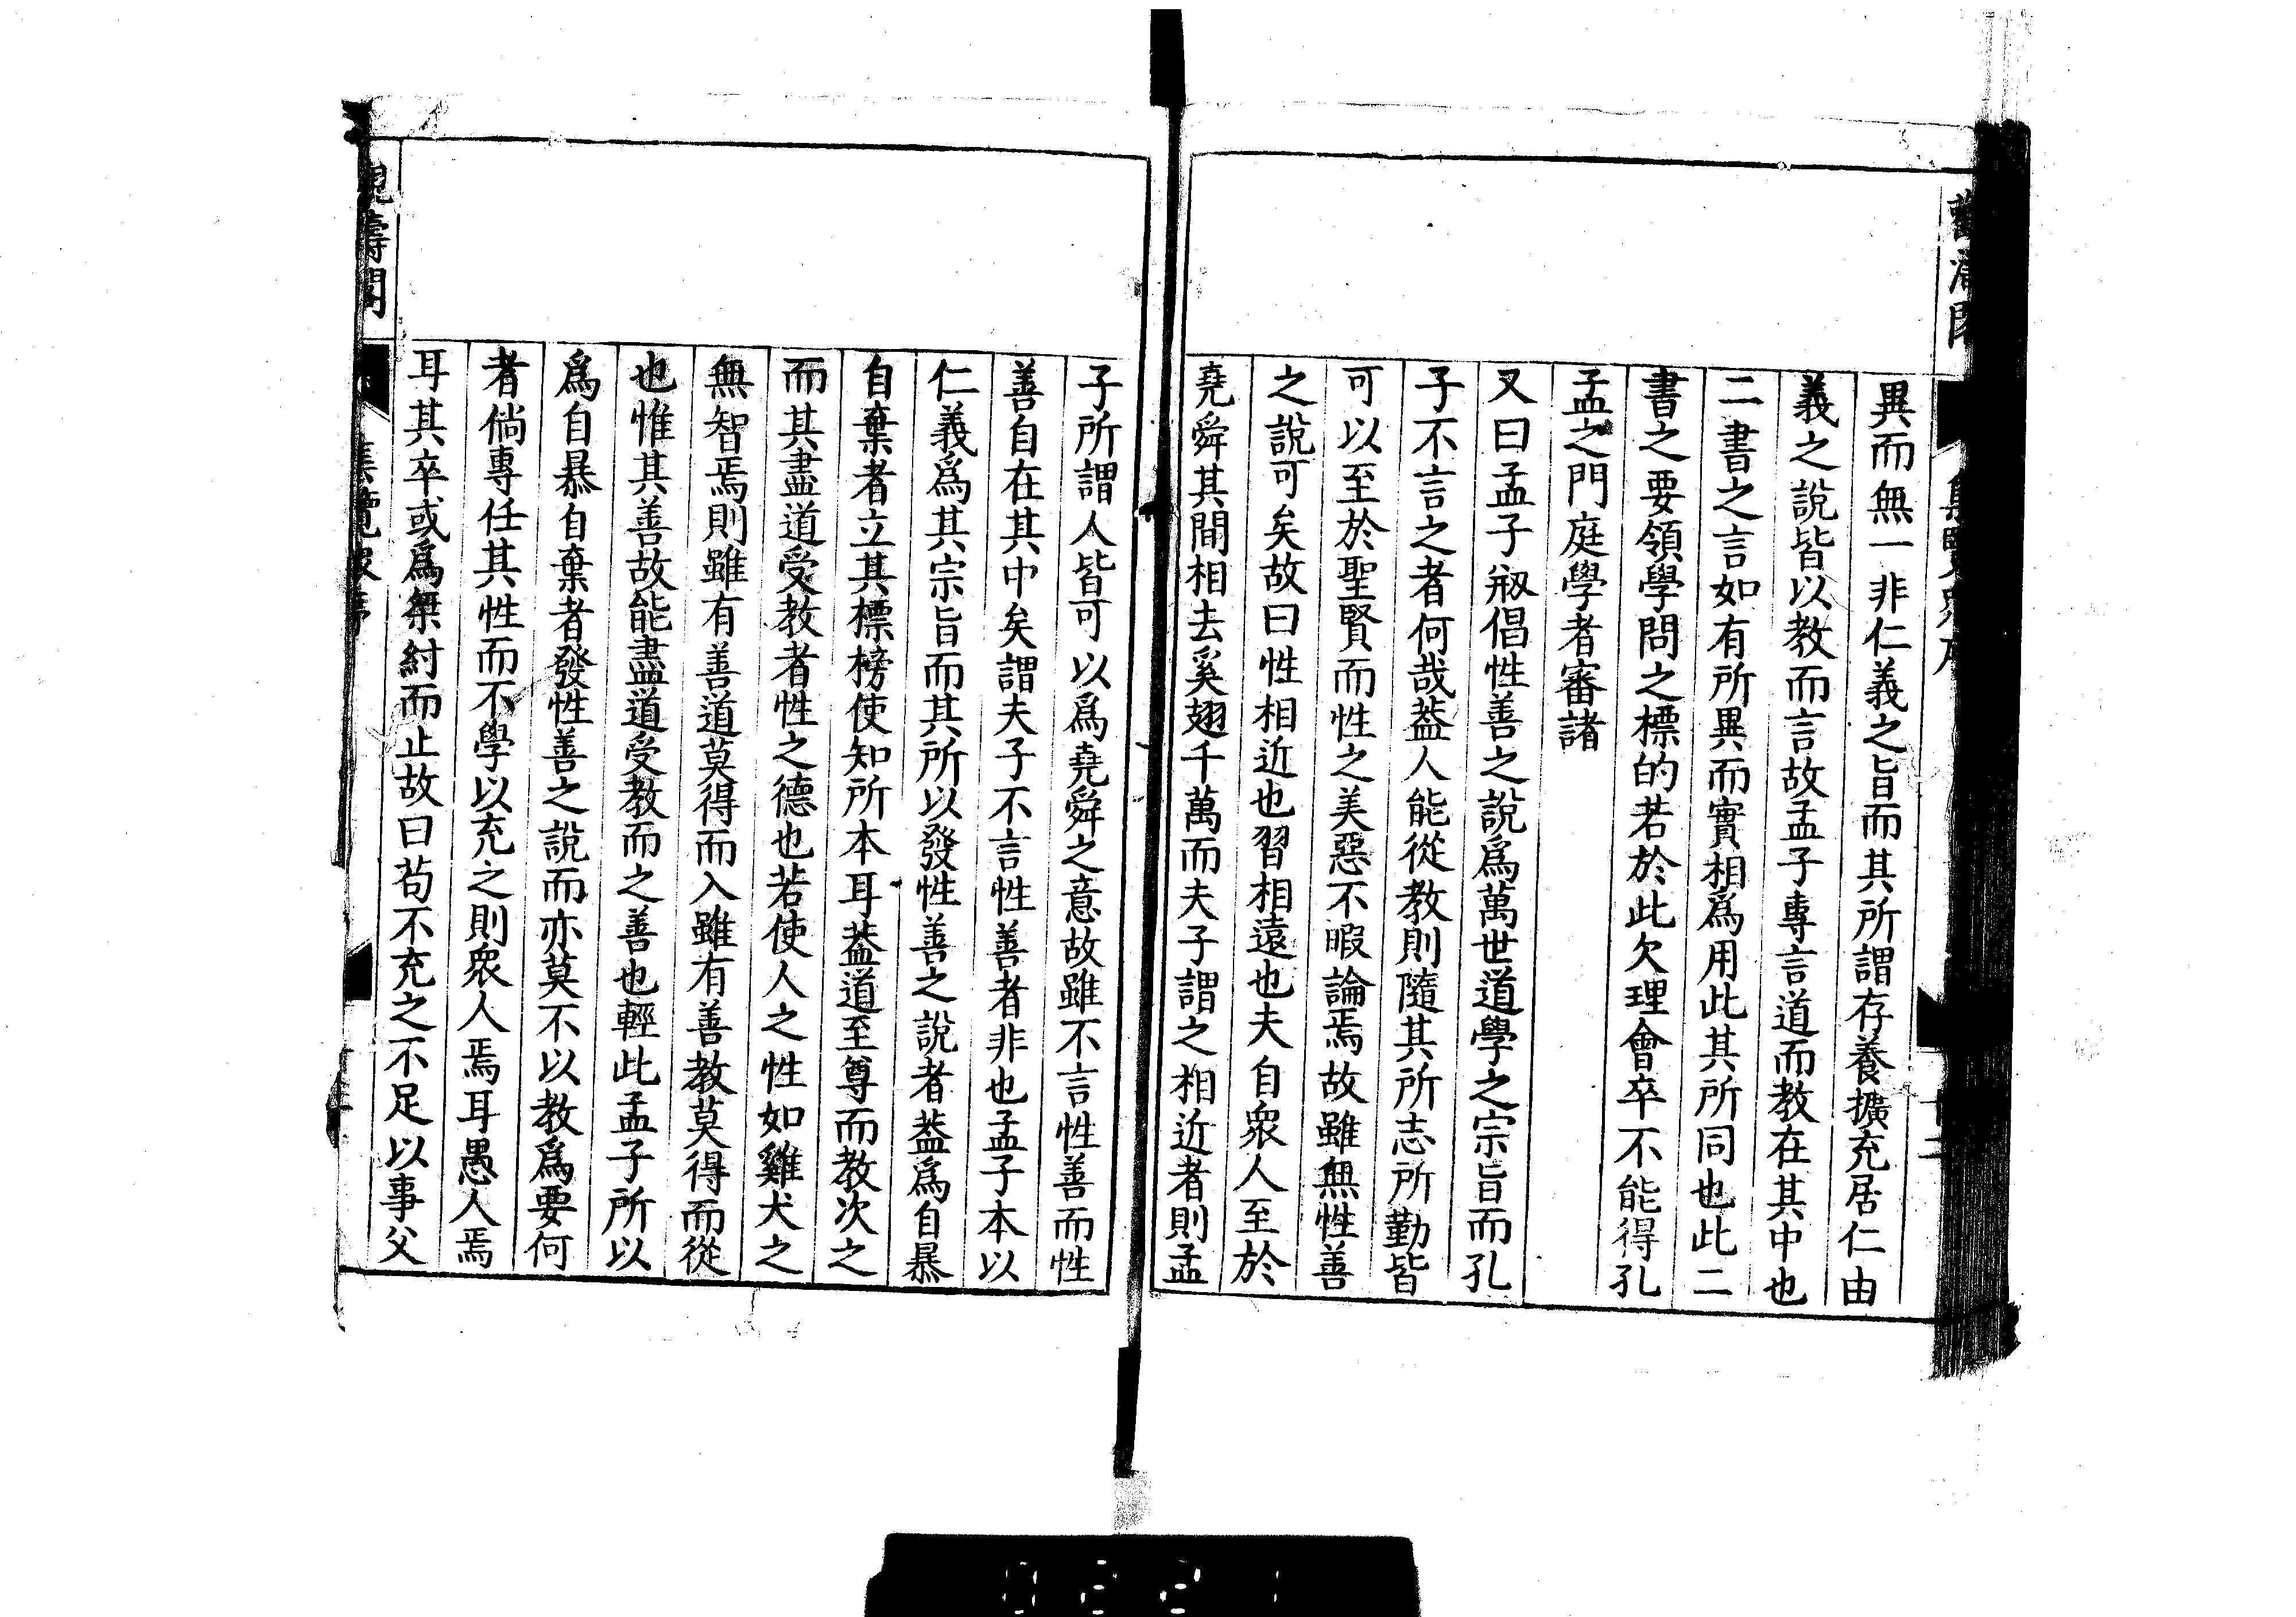 異而無一非仁義之旨而其所謂存養擴充居仁由
義之說皆以教而言故孟子專言道而教在其中也
二書之言如有所異而實相爲用此其所同也此二
書之要領學問之標的若於此欠理會卒不能得孔
孟之門庭學者審諸
又曰孟子剏倡性善之說爲萬世道學之宗旨而孔
子不言之者何哉葢人能從教則隨其所志所勤皆
可以至於聖賢而性之美惡不暇論焉故雖無性善
之說可矣故曰性相近也習相遠也夫自衆人至於
堯舜其間相去奚翅千萬而夫子謂之相近者則孟
子所謂人皆可以爲堯舜之意故雖不言性善而性
善自在其中矣謂夫子不言性善者非也孟子本以
仁義爲其宗旨而其所以發性善之說者葢爲自暴
自棄者立其標榜使知所本耳葢道至尊而教次之
而其盡道受教者性之德也若使人之性如雞犬之
無智焉則雖有善道莫得而入雖有善教莫得而從
也惟其善故能盡道受教而之善也輕此孟子所以
爲自暴自棄者發性善之說而亦莫不以教爲要何
者倘專任其性而不學以充之則衆人焉耳愚人焉
耳其卒或爲桀紂而止故曰苟不充之不足以事父